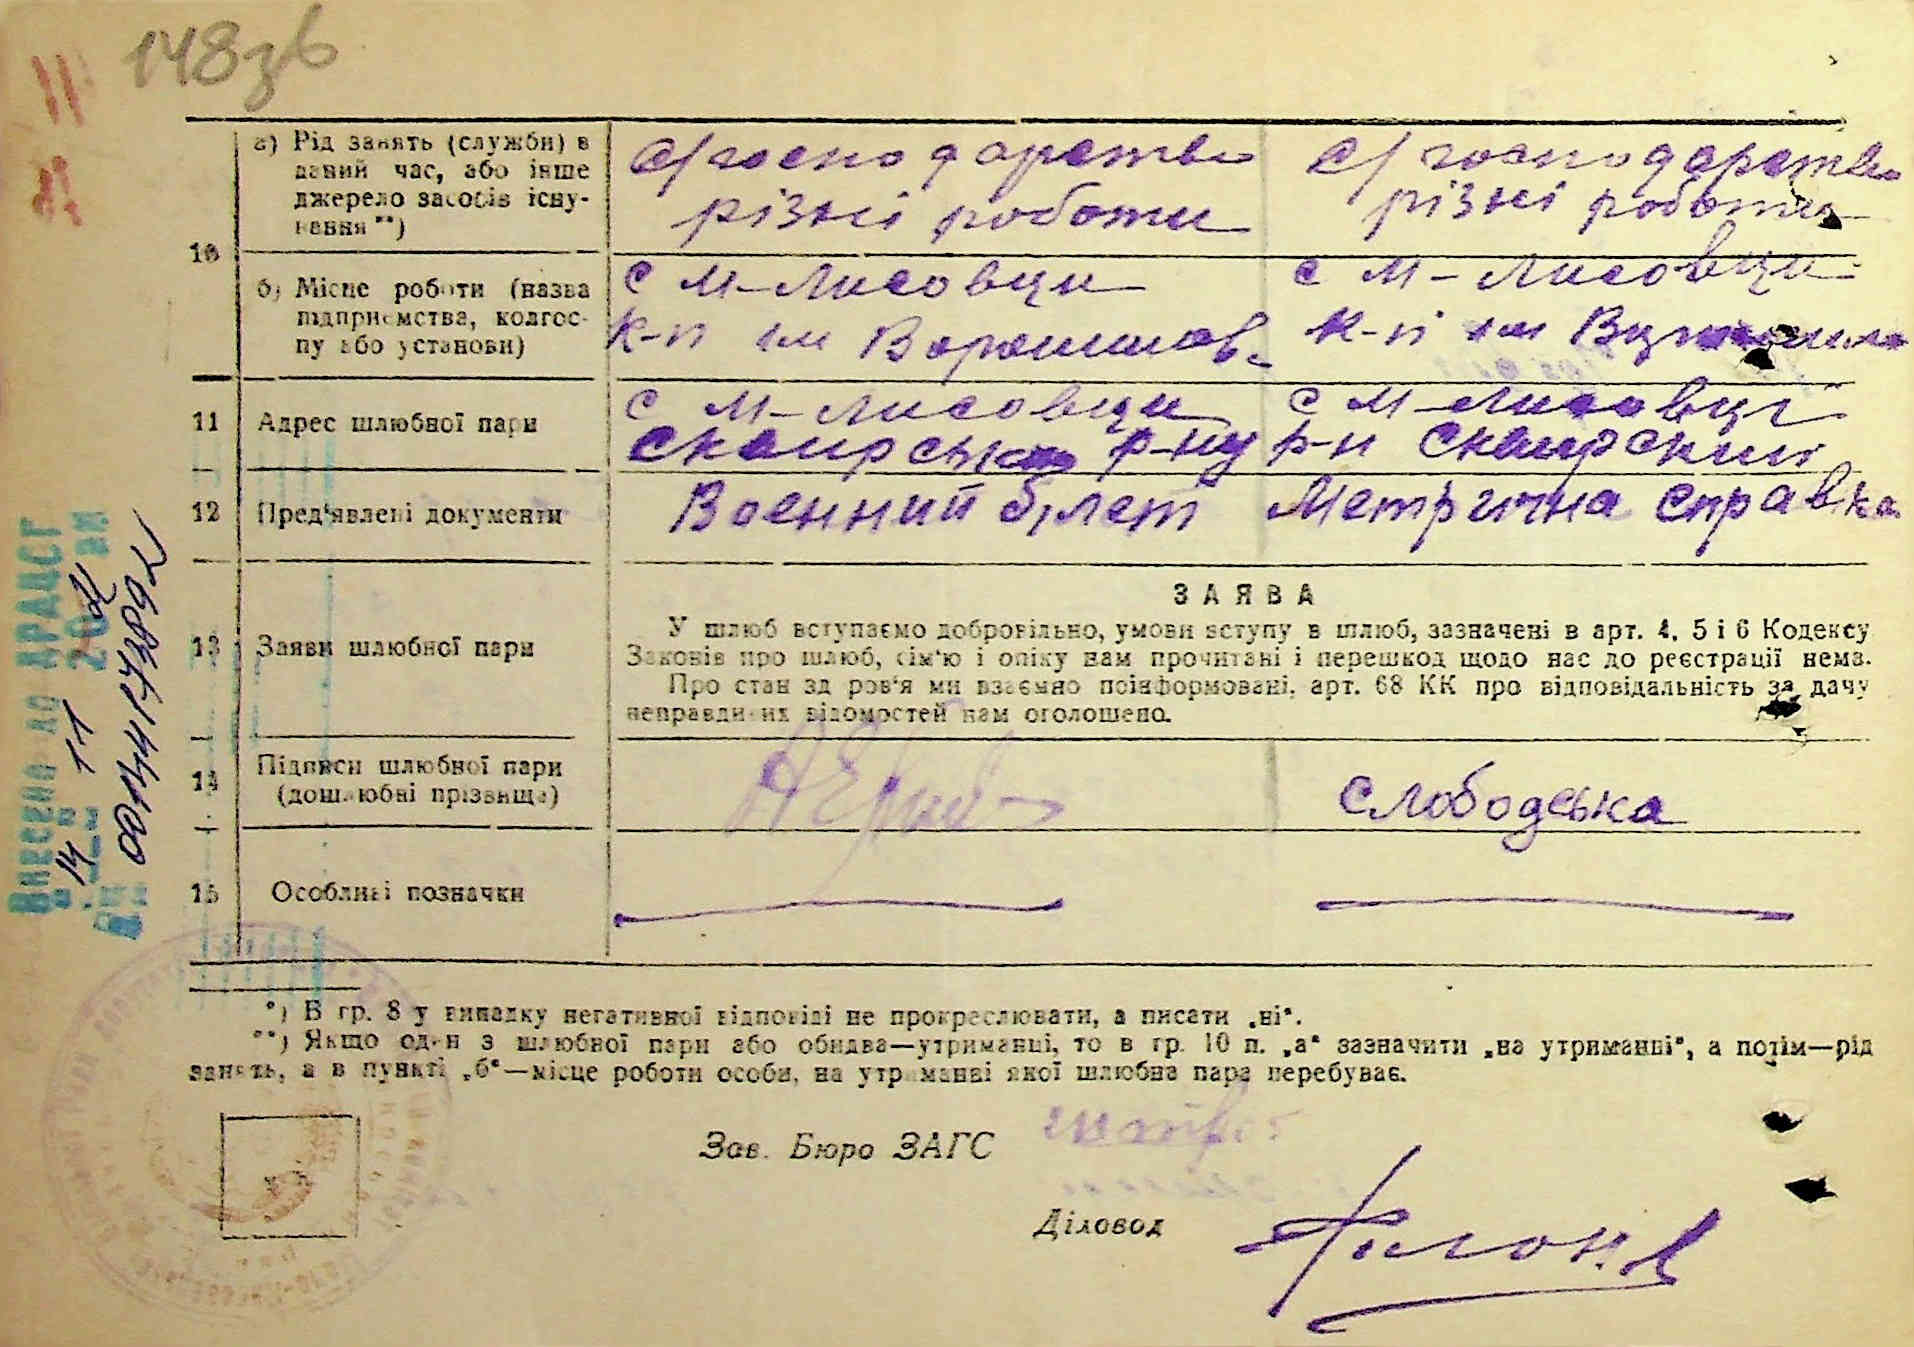 148зв
10
а) Рід занять (служби) в
даний час, або інше
джерело засобів існу-
вання **)
с/господарство
різні роботи
с/господарство
різні роботи
б) Місце роботи (назва
підприємства, колгос-
пу або установи)
с М-Лисовци
к-п им Ворошилов
с М-Лисовци
к-п им
11 Адрес шлюбної пари
с М-Лисовци
Сквирськ р-ну
с М-Лисовці
р-н Сквирский
12 Пред'явлені документи
Военний білет
Метрична справка
13 Заяви шлюбної пари
ЗАЯВА
У шлюб вступаємо добровільно, умови вступу в шлюб, зазначені в арт. 4, 5 і 6 Кодексу
Законів про шлюб, сім'ю і опіку нам прочитані і перешкод щодо нас до реєстрації нема.
Про стан здоров'я ми взаємно поінформовані, арт. 68 КК про відповідальність за дачу
неправдивих відомостей нам оголошено.
14 Підписи шлюбної пари
(дошлюбні прізвища)
Слободська
15 Особливі позначки
*) В гр. 8 у випадку негативної відповіді не прокреслювати, а писати „ні“.
**) Якщо один з шлюбної пари або обидва—утриманці, то в гр. 10 п. „а“ зазначити „на утриманні“, а потім—рід
занять, а в пункті „б“—місце роботи особи, на утриманні якої шлюбна пара перебуває.
Зав. Бюро ЗАГС
Діловод
Внесено до ДРАЦСГ
14 11
00141473892